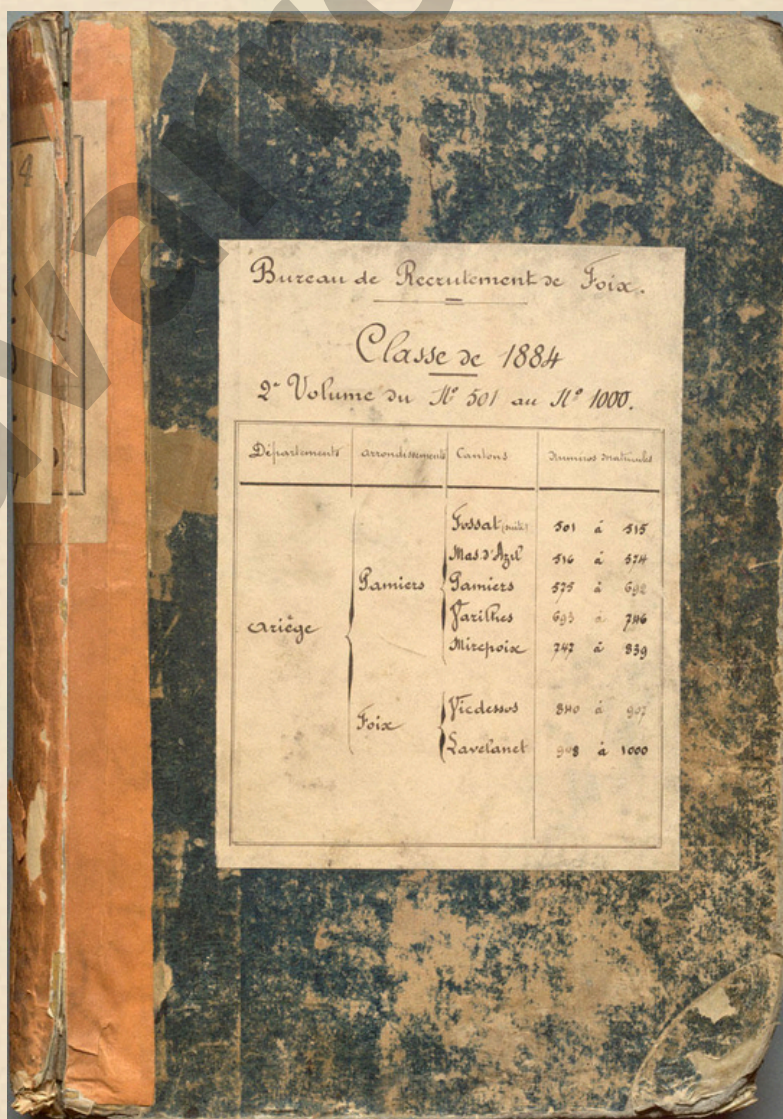 Bureau de Recrutement de Foix.
Classe de 1884
2e Volume du N° 501 au N° 1000.
Départements Arrondissements Cantons Numéros Matricules
Fossat (suite) 501 à 515
Mas d'Azil 516 à 574
Pamiers Pamiers 575 à 692
Ariège Varilhes 693 à 746
Mirepoix 747 à 839
Foix Vicdessos 840 à 907
Lavelanet 908 à 1000